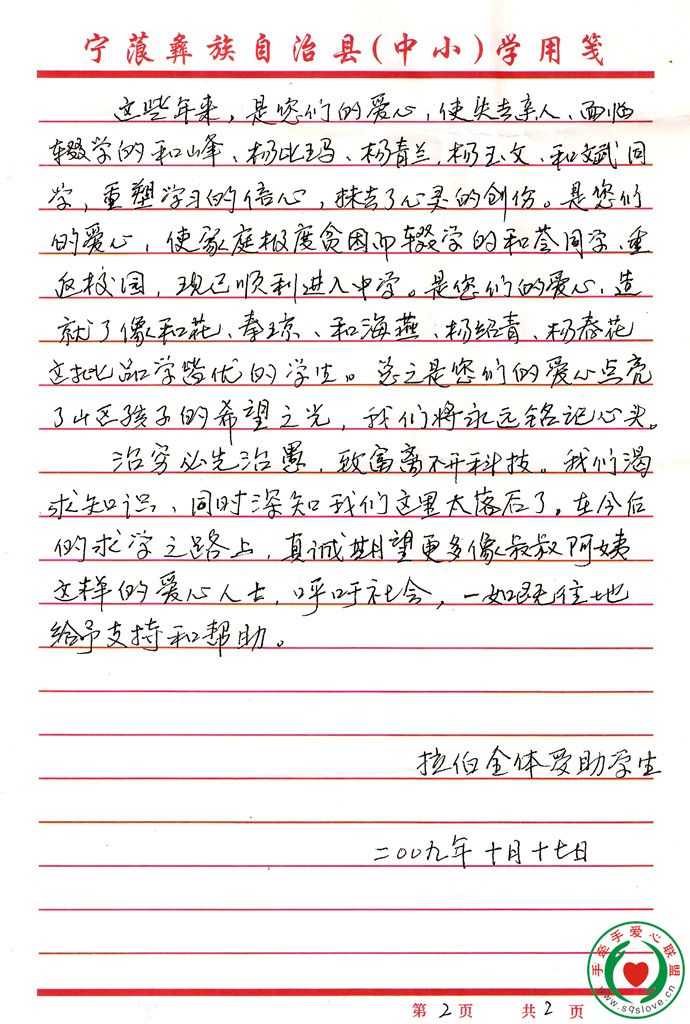 宁蒗彝族自治县(中小)学用笺
这些年来，是您们的爱心，使失去亲人、面临
辍学的和山峰、杨比玛、杨青兰、杨玉文、和文斌同
学，重塑学习的信心，抹去了心灵的创伤。是您们
的爱心，使家庭极度贫困而辍学的和荟同学重
返校园，现已顺利进入中学。是您们的爱心，造
就了像和花、秦琼、和海燕、杨绍青、杨春花
这批品学皆优的学生。总之是您们的爱心点亮
了山区孩子的希望之光，我们将永远铭记心头。
治穷必先治愚，致富离不开科技。我们渴
求知识、同时深知我们这里太落后了。在今后
的求学之路上，真诚期望更多像叔叔阿姨
这样的爱心人士，呼吁社会，一如既往地
给予支持和帮助。
拉伯全体受助学生
二00九年十月十七日
手牵手爱心联盟
www.sqslove.cn
第 2 页 共 2 页